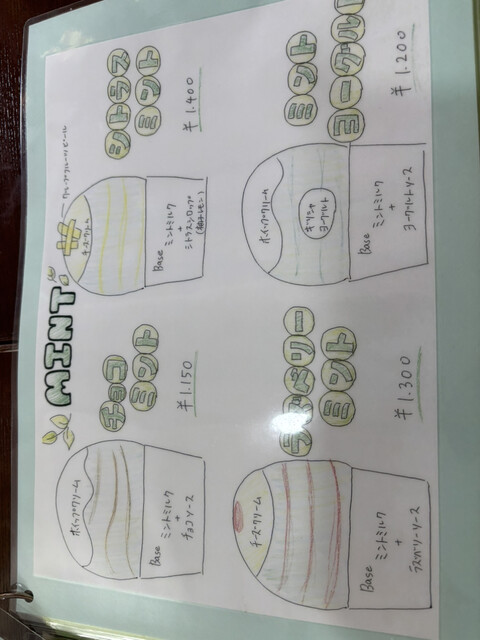 MINT
ホイップクリーム
Base
ミントミルク
+
チョコソース
チョコ
ミント
¥1.150
グレープフルーツピール
チーズクリーム
Base
ミントミルク
+
シトラスシロップ
シトラス
ミント
¥1.400
チーズクリーム
Base
ミントミルク
+
ラズベリーソース
ラズベリー
ミント
¥1.300
ホイップクリーム
ギリシャ
ヨーグルト
Base
ミントミルク
+
ヨーグルトソース
ミント
ヨーグルト
¥1.200